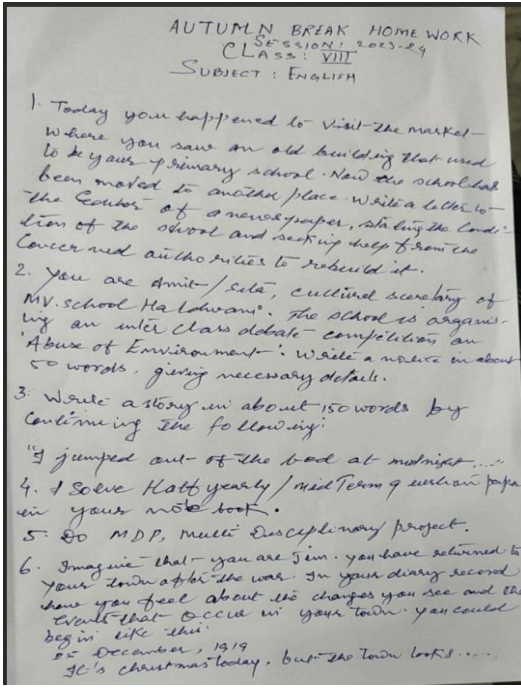 AUTUMN BREAK HOME WORK
SESSION: 2023-24
CLASS: VIII
SUBJECT: ENGLISH
1. Today you happened to visit the market
where you saw an old building that used
to be your primary school. Now the school has
been moved to another place. Write a letter to
the Editor of a newspaper, stating the condi-
tion of the school and seeking help from the
Concerned authorities to rebuild it.
2. You are Amit/Sita, cultural secretary of
MV. School Haldwani. The school is organis-
ing an inter class debate competition on
'Abuse of Environment'. Write a notice in about
50 words, giving necessary details.
3. Write a story in about 150 words by
Continuing the following:
"I jumped out of the bed at midnight...."
4. Solve Half yearly/mid Term question paper
in your note book.
5. Do MDP, Multi Disciplinary project.
6. Imagine that you are Jim. You have returned to
your town after the war. In your diary record
how you feel about the changes you see and the
events that occur in your town. You could
begin like this:
25 December, 1919
It's christmas today, but the town looks.....